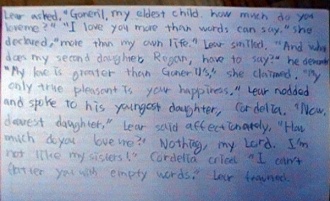 Lear asked, "Goneril, my eldest child. how much do you
love me?" "I love you more than words can say," she
declared, "more than my own life." Lear smiled. "And what
does my second daughter, Regan, have to say?" he demanded
"My love is greater than Goneril's," she claimed, "My
only true pleasant is your happiness." Lear nodded
and spoke to his youngest daughter, Cordelia. "Now,
dearest daughter," Lear said affectionately. "How
much do you love me?" Nothing, my Lord. I'm
not like my sisters!" Cordelia cried "I can't
flatter you with empty words." Lear frowned.